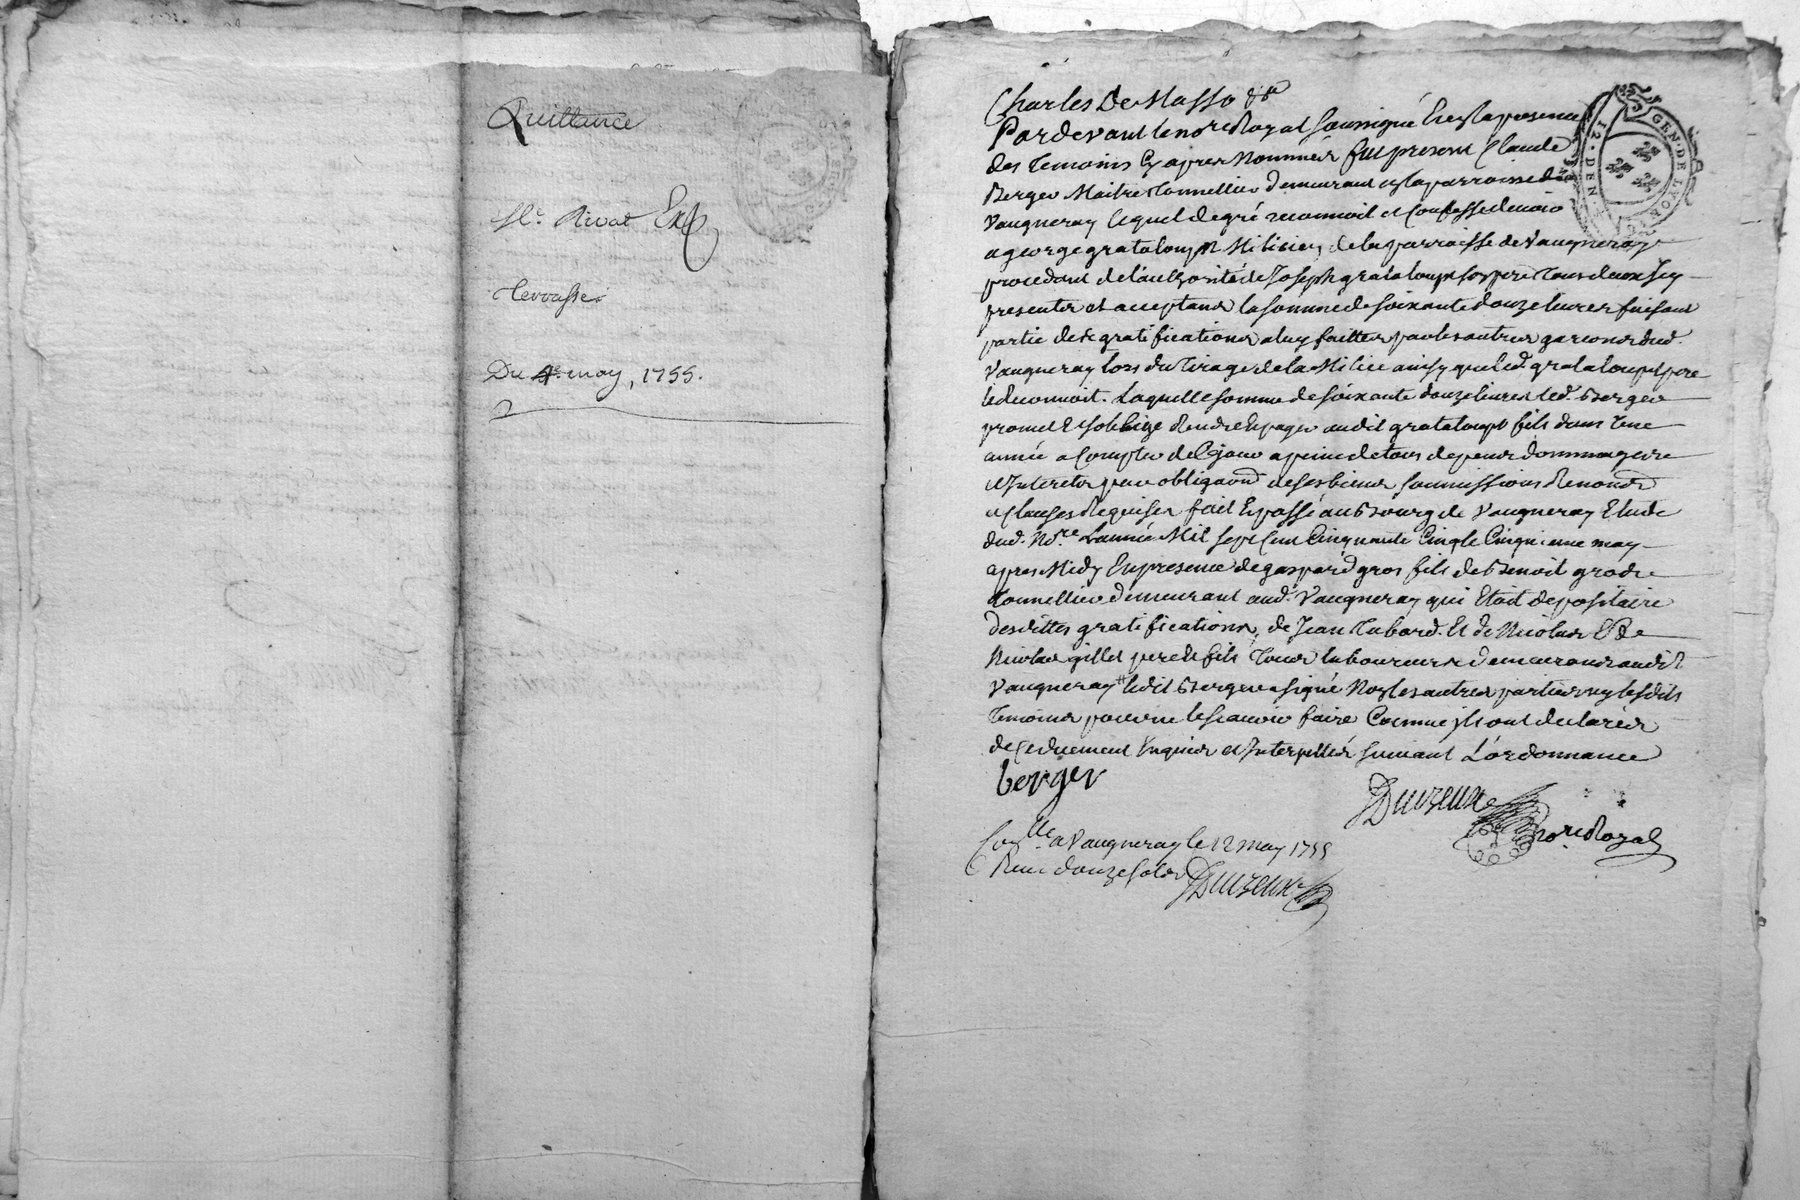 Quittance
Mr. Rivat
Terrasse
Du 4e. may, 1755.
Charles De Masso &a
Pardevant le nore Royal soussigné Et en la presence
des Temoins Cy apres Nommés fut present Claude
Berger Maitre Tonnellier demeurant en la parroisse de
Vaugneray lequel de gré reconnoit et Confesse devoir
a george grataloup Milicien de la parroisse de Vaugneray
procedant de l'authorité de Joseph grataloup son pere tous deux Icy
presents et acceptans la somme de soixante douze livres faisant
partie des gratifications a luy faittes par les autres garçons dud.
Vaugneray lors du Tirage de la Milice ainsy que led. grataloup pere
le reconnoit. Laquelle somme de soixante douze livres led. Berger
promet Et s'oblige Rendre Et payer audit grataloup fils dans Une
année a Compter de Ce jour a peine de tous depens dommages
et Interets par obligaon de ses biens soumissions Renonon
et Clauses Requises fait Et passé au Bourg de Vaugneray Etude
dud. Nore. L'année Mil sept Cent Cinquante Cinq le Cinquieme may
apres Midy En presence de gaspard gros fils de Benoit gros
tonnellier demeurant aud. Vaugneray qui Etoit depositaire
desdittes gratifications, de Jean Tabard. Et de Nicolas
Nicolas gillet pere et fils Tous laboureurs demeurans audit
Vaugneray ledit Berger a signé Non les autres parties ny lesdits
temoins pour ne le sçavoir faire Comme ils ont declarés
de Ce duement Enquis et Interpellés suivant L'ordonnance
berger
Duizeux
nore Royal
Conlle a Vaugneray le 12 may 1755
Reçu douze sols Duizeux
GEN. DE LYON
12. DEN.